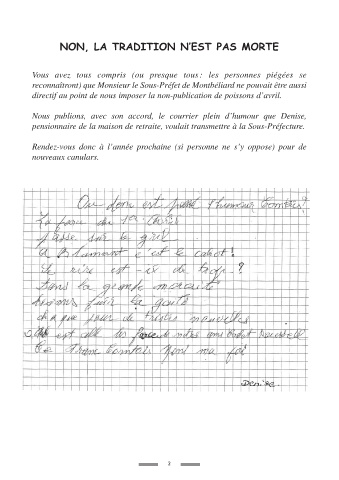 NON, LA TRADITION N'EST PAS MORTE
Vous avez tous compris (ou presque tous : les personnes piégées se
reconnaîtront) que Monsieur le Sous-Préfet de Montbéliard ne pouvait être aussi
directif au point de nous imposer la non-publication de poissons d'avril.
Nous publions, avec son accord, le courrier plein d'humour que Denise,
pensionnaire de la maison de retraite, voulait transmettre à la Sous-Préfecture.
Rendez-vous donc à l'année prochaine (si personne ne s'y oppose) pour de
nouveaux canulars.
Ou donc est passé l'humour Comtois ?
La farce du 1er Avril
passe sur le gril
A Blamont c'est le cahot !
Le rire est-il de trop ?
Dans la grande morosité
laissons fuir la gaité
chaque jour de tristes nouvelles
est celle des de notre ami
La Franc Comtois ma foi
Denise
3